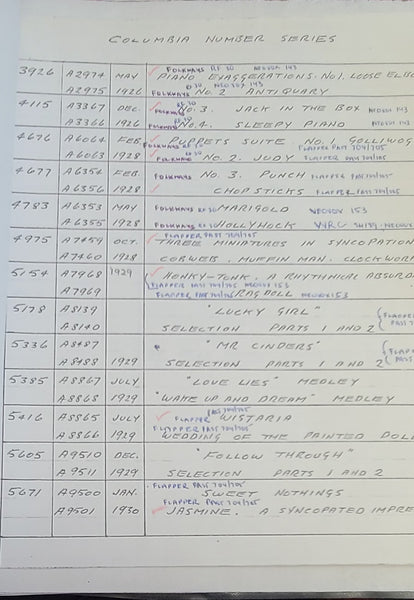 COLUMBIA NUMBER SERIES
FOLKWAYS RF 30 NEOVOX 143
3926 A2974 MAY PIANO EXAGGERATIONS. No1. LOOSE ELBO
A2975 1926 FOLKWAYS No. 2 ANTIQUARY
4115 A3367 DEC. No. 3. JACK IN THE BOX NEOVOX 143
A3366 1926 FOLKWAYS No. 4. SLEEPY PIANO
4676 A6064 FEB. PUPPETS SUITE. No. 1. GOLLIWOG
FLAPPER PAST 704/705
A6063 1928 FOLKWAYS No. 2. JUDY FLAPPER PAST 704/705
4677 A6354 FEB. No. 3. PUNCH FLAPPER PAST 704/705
A6356 1928 CHOPSTICKS FLAPPER PAST 704/705
4783 A6353 MAY FOLKWAYS RF 30 MARIGOLD NEOVOX 153
A6355 1928 FOLKWAYS RF 30 HOLLYHOCK
FLAPPER PAST 704/705
4975 A7459 OCT. THREE MINIATURES IN SYNCOPATION
A7460 1928 COBWEB. MUFFIN MAN. CLOCKWOR
5154 A7968 1929 HONKY-TONK. A RHYTHMICAL ABSURD
FLAPPER PAST 704/705 NEOVOX 153
A7969 FLAPPER PAST 704/705 RAG DOLL NEOVOX 153
5178 A8139 "LUCKY GIRL" FLAPP
A8140 SELECTION PARTS 1 AND 2 PAST 70
5336 A8487 "MR CINDERS" FLAPP
A8488 1929 SELECTION PARTS 1 AND 2 PAST
5385 A8867 JULY "LOVE LIES" MEDLEY
A8868 1929 "WAKE UP AND DREAM" MEDLEY
5416 A8865 JULY FLAPPER PAST 704/705 WISTARIA
FLAPPER PAST 704/705
A8866 1929 WEDDING OF THE PAINTED DOLL
5605 A9510 DEC. "FOLLOW THROUGH"
A9511 1929 SELECTION PARTS 1 AND 2
FLAPPER PAST 704/705
5671 A9500 JAN. SWEET NOTHINGS
FLAPPER PAST 704/705
A9501 1930 JASMINE. A SYNCOPATED IMPRE